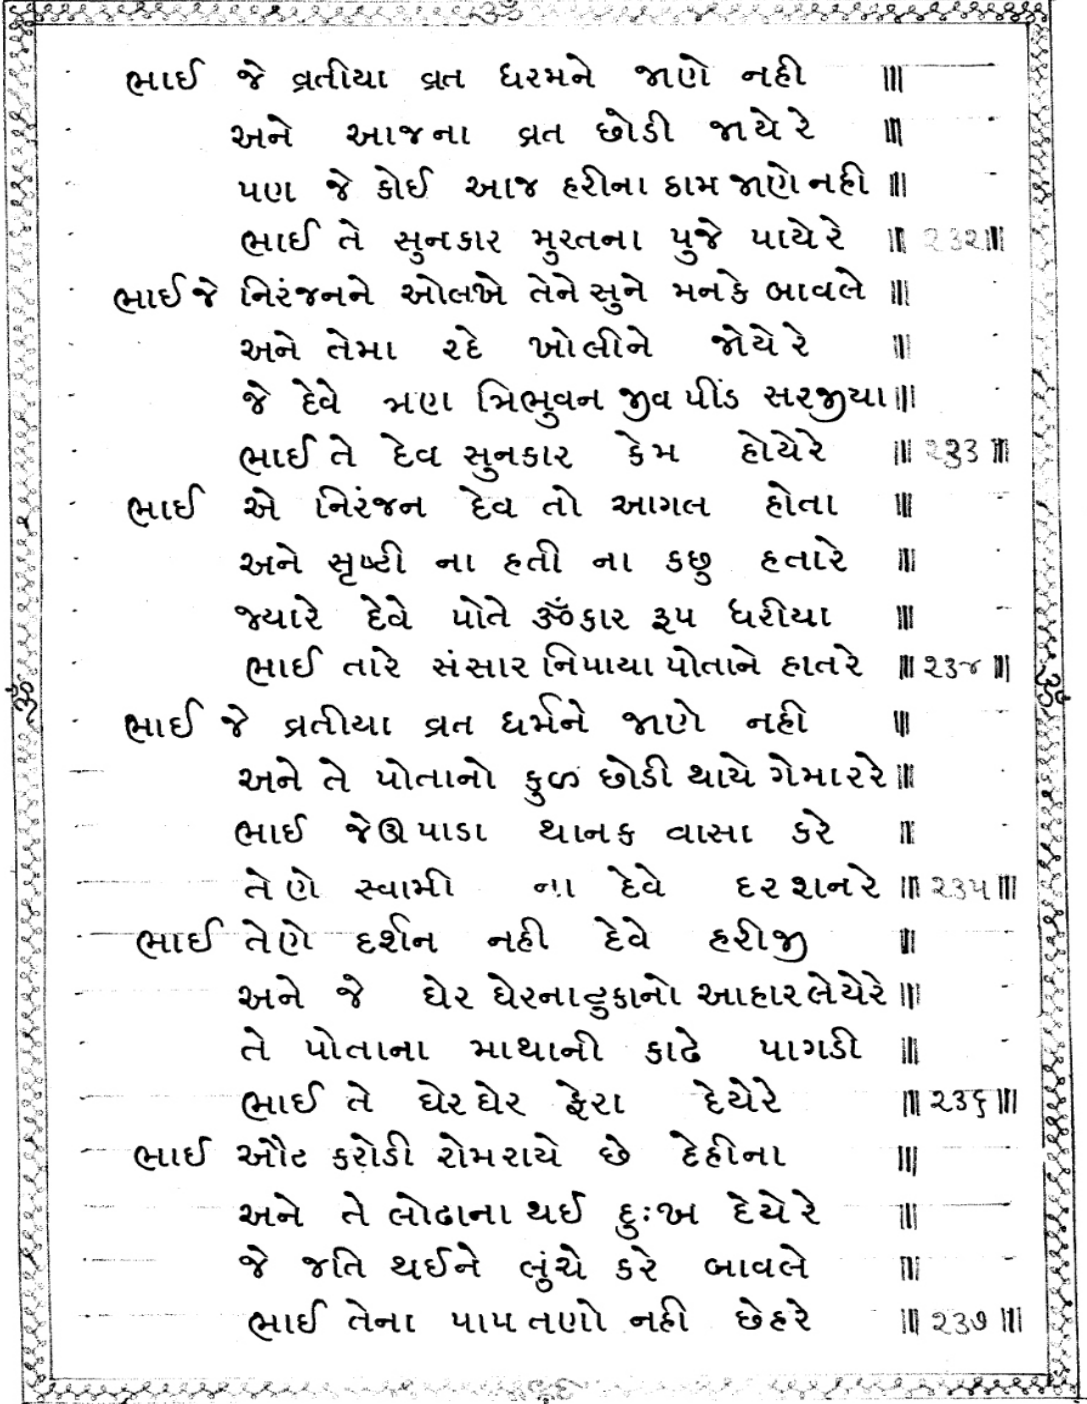 ભાઈ જે વ્રતીયા વ્રત ધરમને જાણે નહી ॥
અને આજના વ્રત છોડી જાયેરે ॥
પણ જે કોઈ આજ હરીના ઠામ જાણે નહી ॥
ભાઈ તે સુનકાર મુરતના પુજે પાયેરે ॥ ૨૩૨ ॥
ભાઈ જે નિરંજનને ઓલખે તેને સુને મનકે બાવલે ॥
અને તેમા રદે ખોલીને જોયેરે ॥
જે દેવે ત્રણ ત્રિભુવન જીવ પીંડ સરજીયા ॥
ભાઈ તે દેવ સુનકાર કેમ હોયેરે ॥ ૨૩૩ ॥
ભાઈ એ નિરંજન દેવ તો આગલ હોતા ॥
અને સૃષ્ટી ના હતી ના કછુ હતારે ॥
જ્યારે દેવે પોતે ૐકાર રૂપ ધરીયા ॥
ભાઈ તારે સંસાર નિપાયા પોતાને હાતરે ॥ ૨૩૪ ॥
ભાઈ જે વ્રતીયા વ્રત ધર્મને જાણે નહી ॥
અને તે પોતાનો કુળ છોડી થાયે ગેમારરે ॥
ભાઈ જે ઊપાડા થાનક વાસા કરે ॥
તેણે સ્વામી ના દેવે દરશનરે ॥ ૨૩૫ ॥
ભાઈ તેણે દર્શન નહી દેવે હરીજી ॥
અને જે ઘેર ઘેરના ટુકાનો આહાર લેયેરે ॥
તે પોતાના માથાની કાઢે પાગડી ॥
ભાઈ તે ઘેર ઘેર ફેરા દેયેરે ॥ ૨૩૬ ॥
ભાઈ ઔટ કરોડી રોમરાયે છે દેહીના ॥
અને તે લોઢાના થઈ દુઃખ દેયેરે ॥
જે જતિ થઈને લુંચે કરે બાવલે ॥
ભાઈ તેના પાપ તણો નહી છેહરે ॥ ૨૩૭ ॥